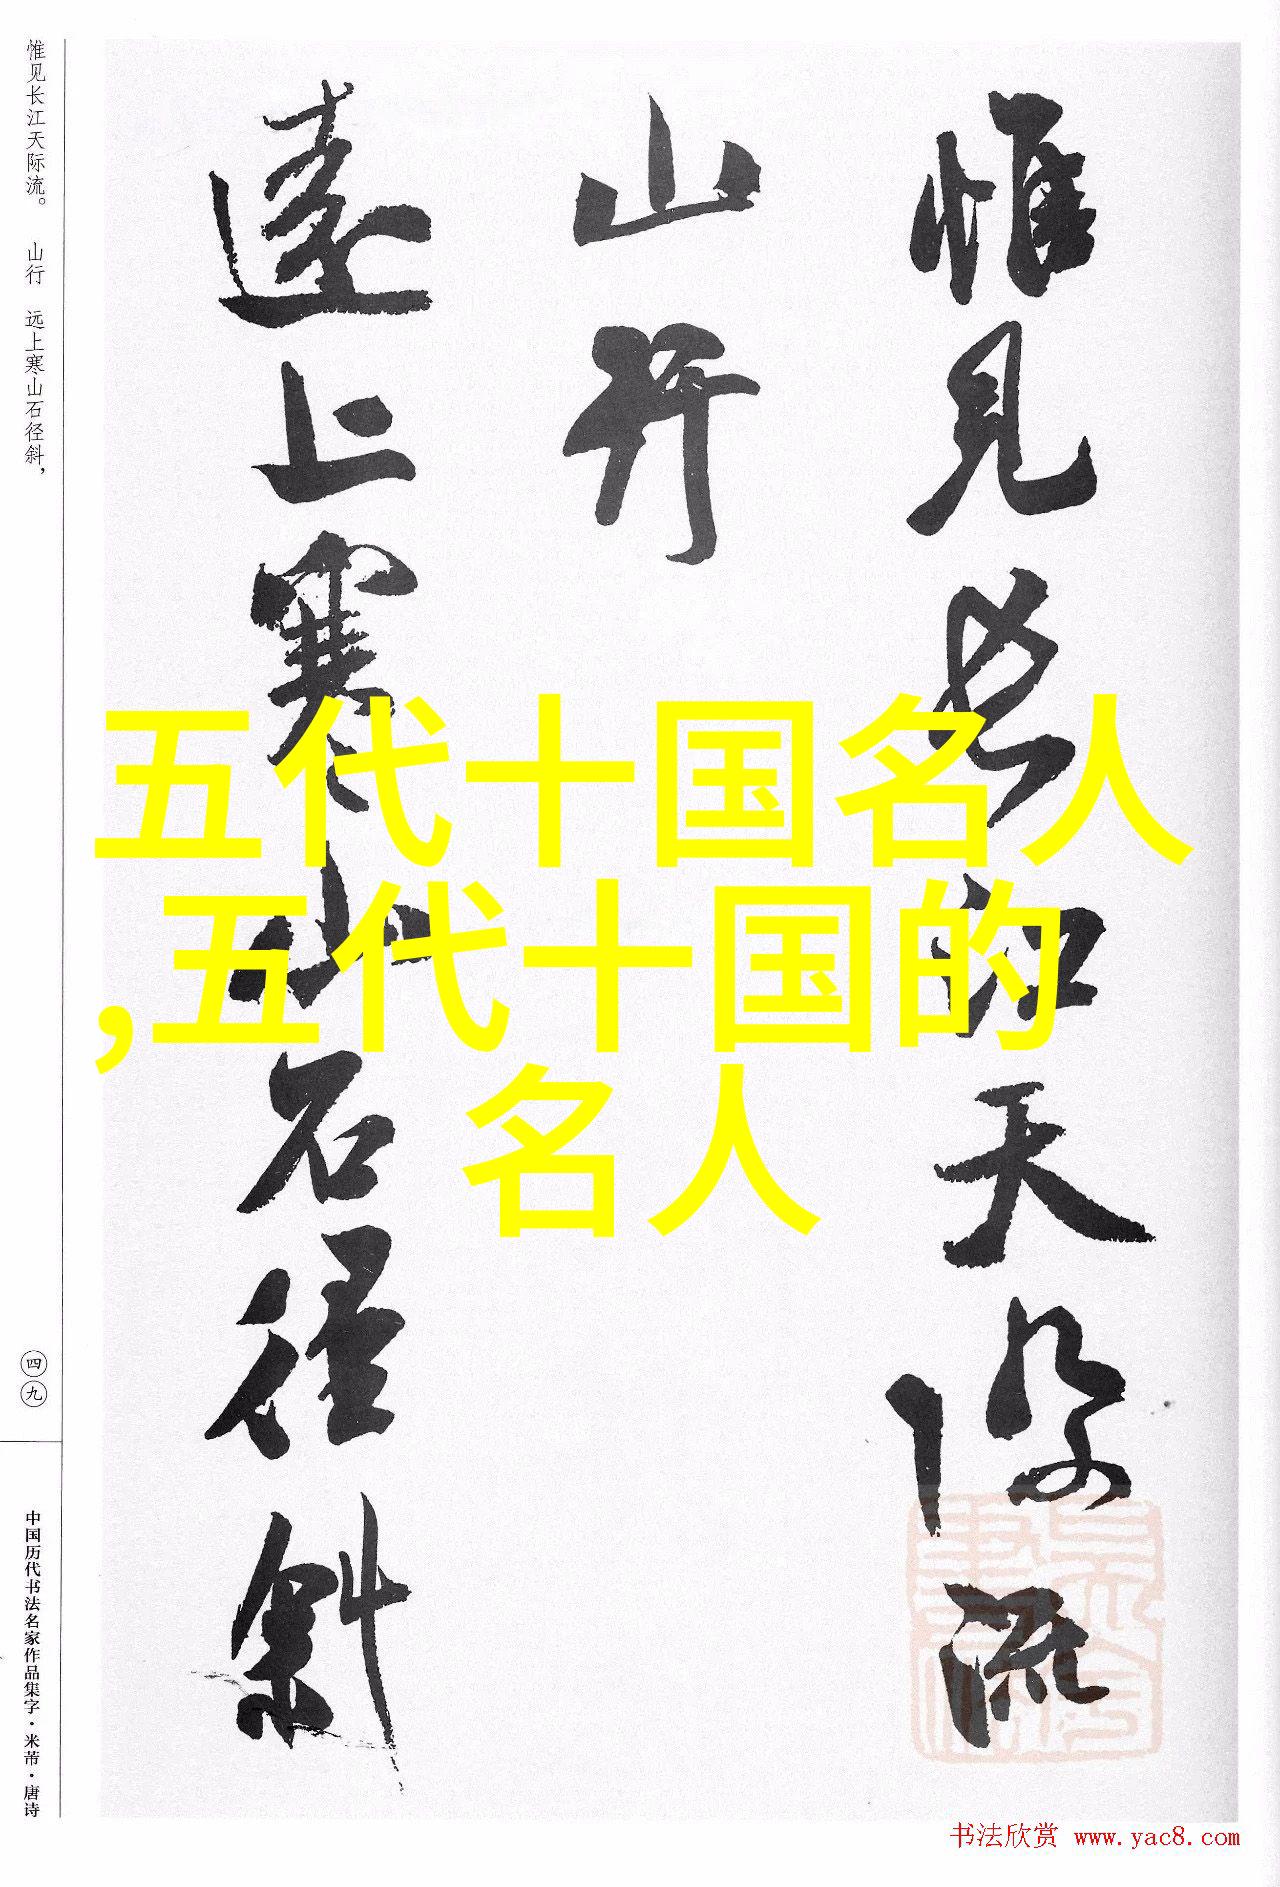 惟见长江天际流。 山行 远上寒山石径斜，
惟見長江天際流
山行
遠上寒山石徑斜
五代十国名人
,五代十国的
名人
四九
中国历代书法名家作品集字·米芾·唐诗
书法欣赏 www.yac8.com